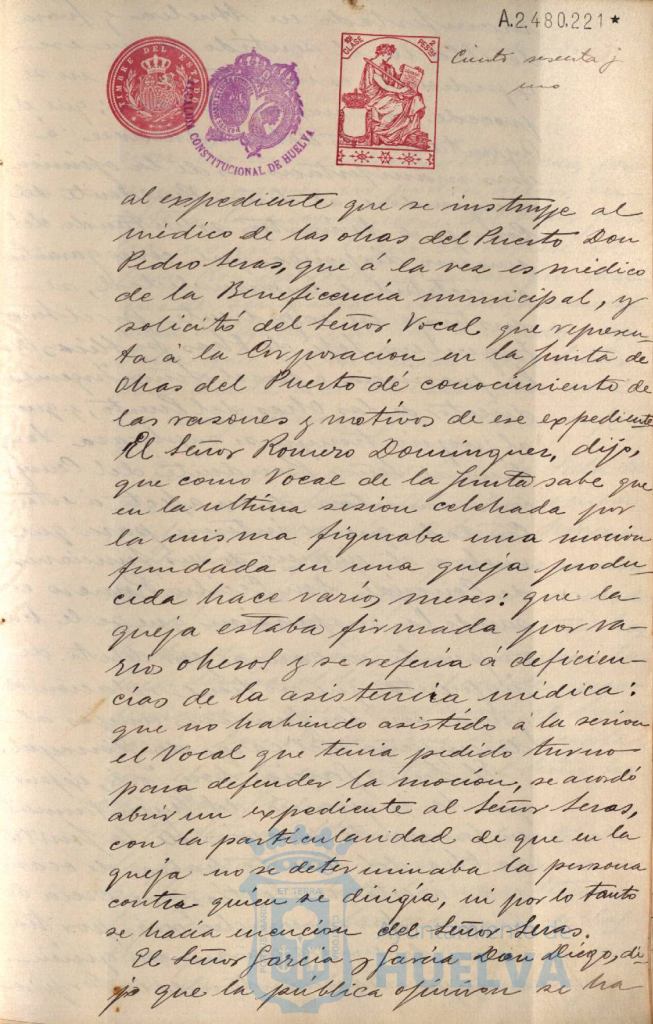 A.2.480.221*
TIMBRE DEL ESTADO
CONSTITUCIONAL DE HUELVA
CLASE 2 PESTAS
Ciento sesenta y
uno
al expediente que se instruye al
médico de las obras del Puerto Don
Pedro Seras, que á la vez es médico
de la Beneficencia municipal, y
solicitó del Señor Vocal que represen-
ta á la Corporacion en la Junta de
Obras del Puerto dé conocimiento de
las rasones y motivos de ese expediente
El Señor Romero Dominguez, dijo,
que como Vocal de la Junta sabe que
en la ultima sesion celebrada por
la misma figuraba una mocion
fundada en una queja produ-
cida hace varios meses: que la
queja estaba firmada por va-
rios obreros y se referia á deficien-
cias de la asistencia médica:
que no habiendo asistido á la sesion
el Vocal que tenia pedido turno
para defender la mocion, se acordó
abrir un expediente al Señor Seras,
con la particularidad de que en la
queja no se determinaba la persona
contra quien se dirigía, ni por lo tanto
se hacia mencion del Señor Seras.
El Señor Garcia y Garcia Don Diego, di-
jo que la pública opinion se ha
HUELVA